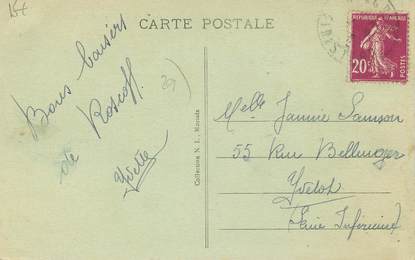 15f
CARTE POSTALE
RÉPUBLIQUE FRANÇAISE
20c
POSTES
Bons baisers
de Roscoff.
Yvette
29
Collections N. L., Morlaix
Melle Jannie Samson
55 Rue Bellanger
Yvetot
(Seine Inférieure)